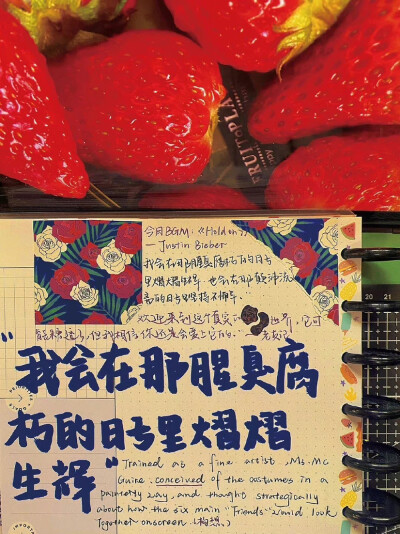 FRUITOPLA
今日BGM:《Hold on》
— Justin Bieber
我会在那腥臭腐朽的日子
里熠熠生辉,也会在那颠沛流
离的日子坚持不懈。
欢迎来到这个真实的世界,它可
能糟透了,但我相信你还是会爱上它的。
20 21
"我会在那腥臭腐
朽的日子里熠熠
生辉"
Trained as a fine artist, Ms. Mc
Guire conceived of the costumes in a
painterly way and thought strategically
about how the six main "Friends" would look
together onscreen. (构想)
IMPORTA